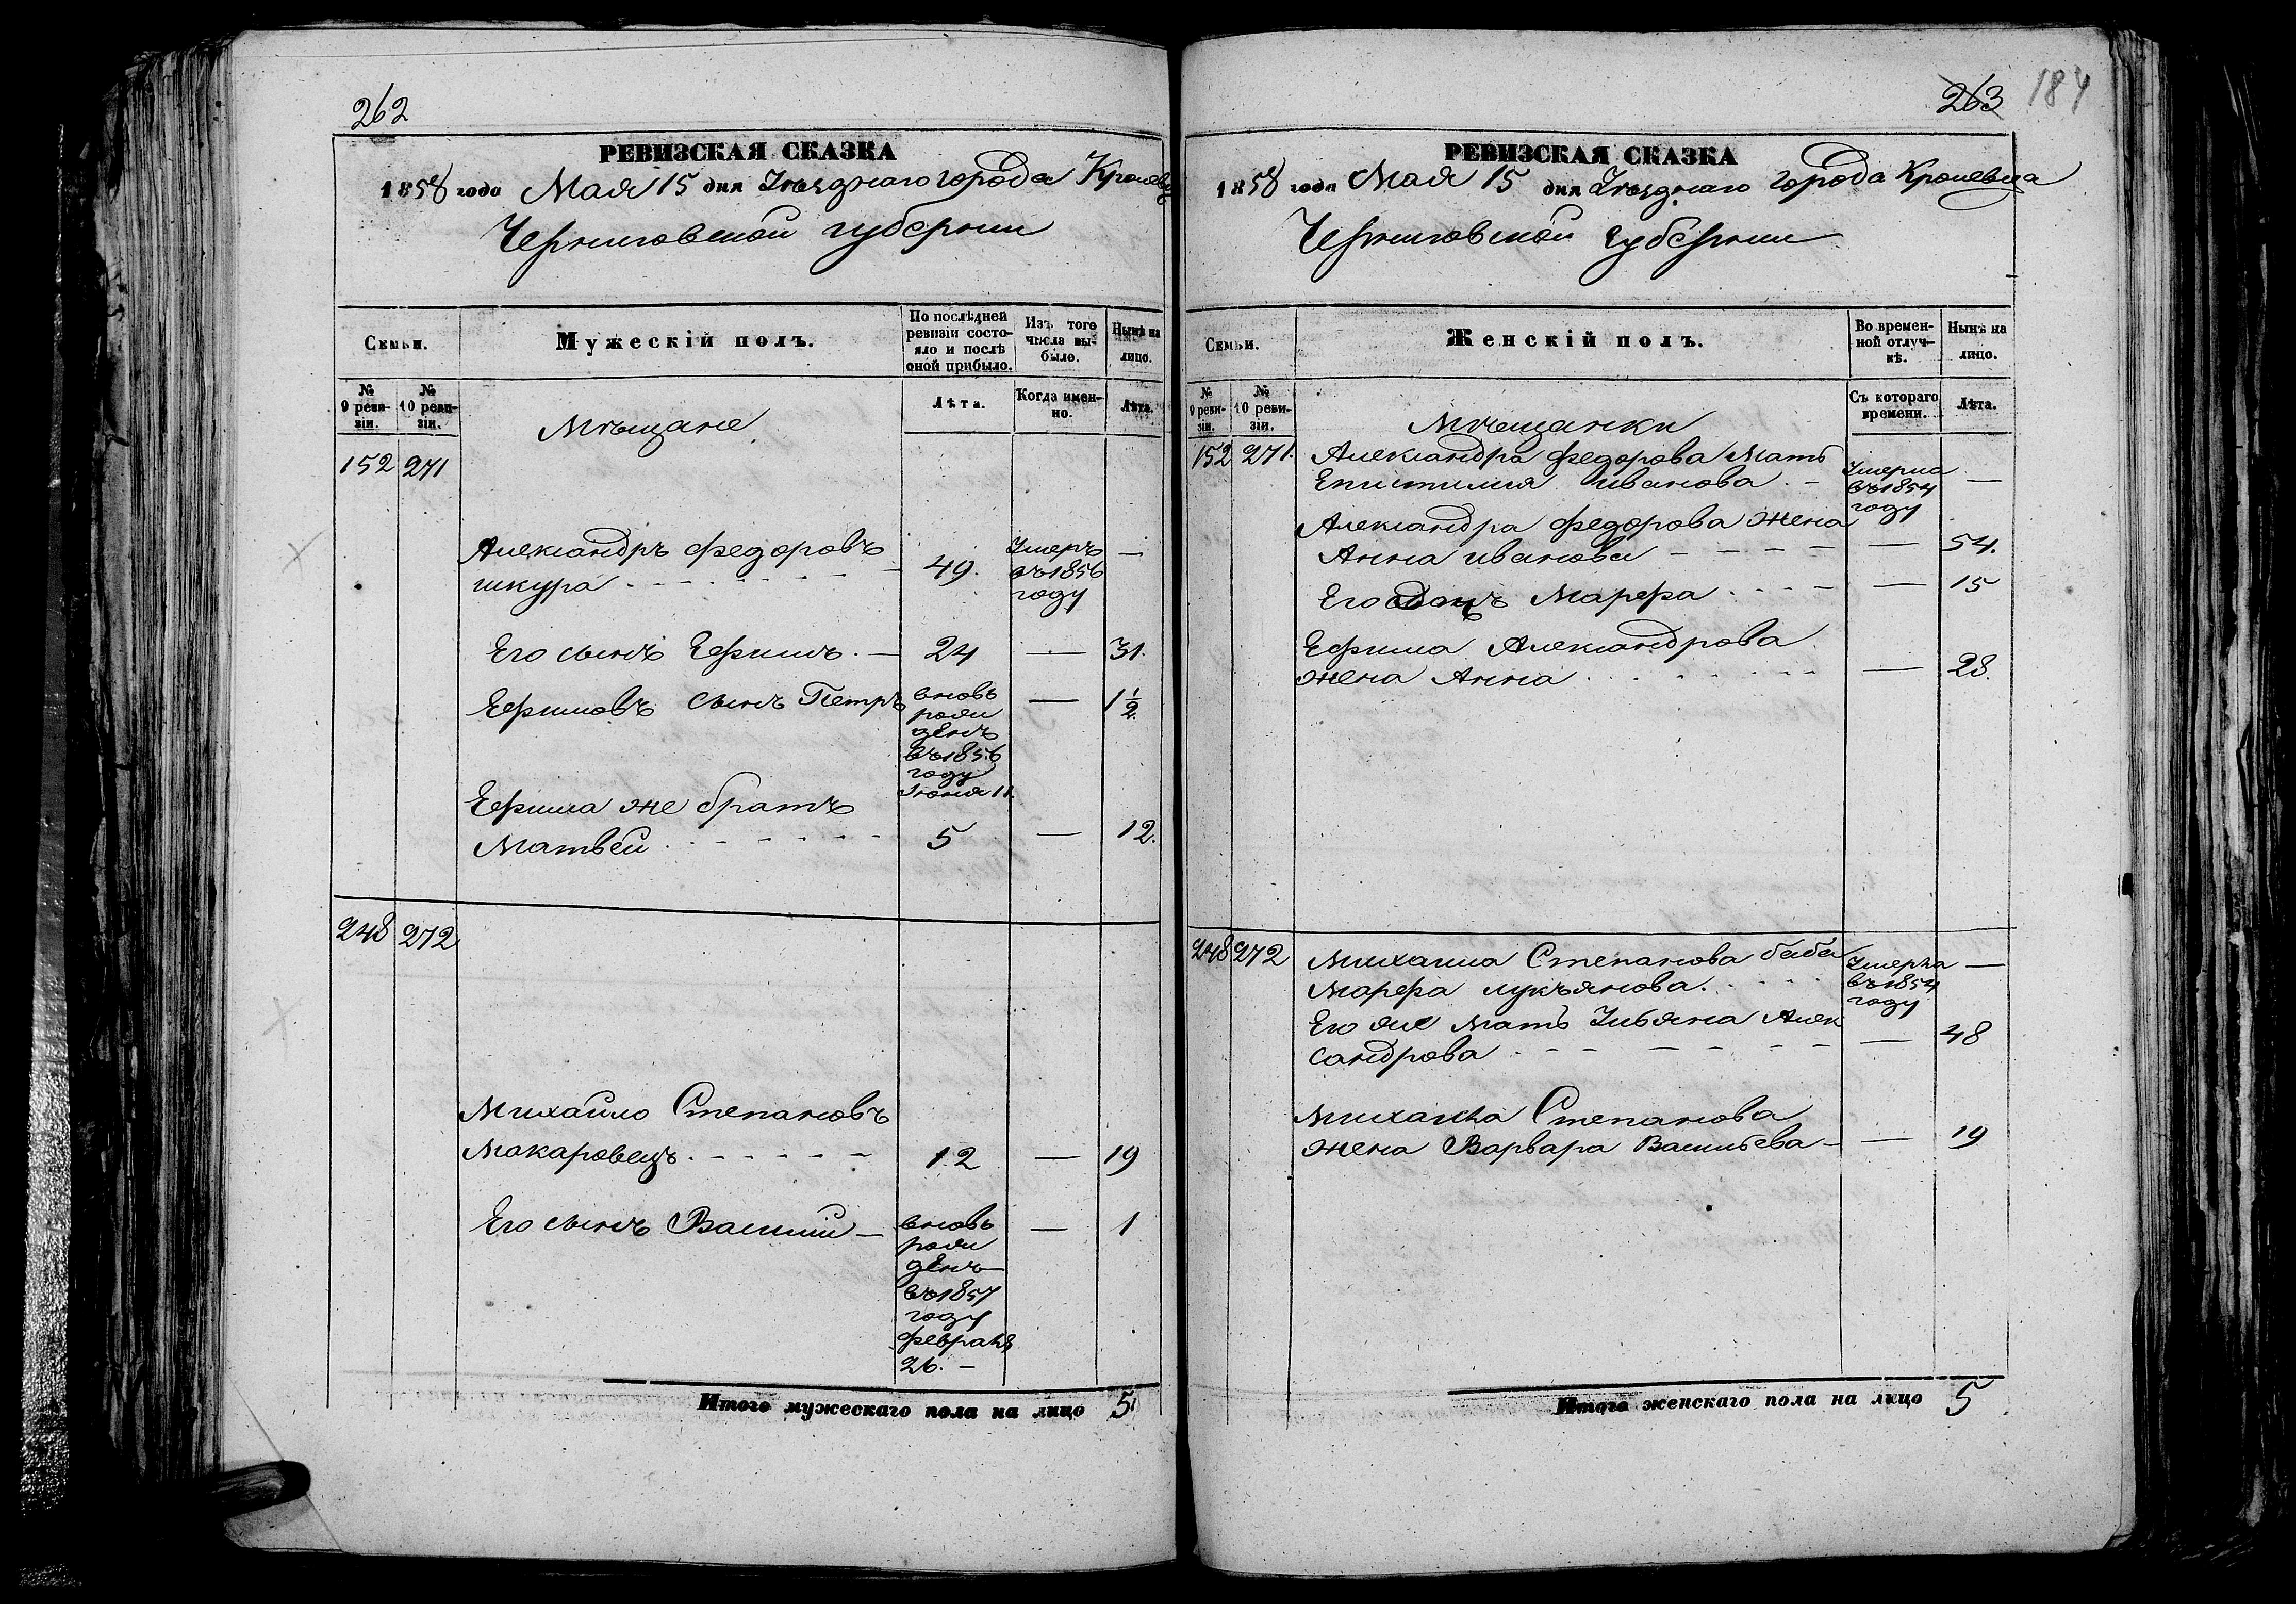 262
РЕВИЗСКАЯ СКАЗКА
1858 года Мая 15 дня Уѣзднаго города Кролевца
Черниговской губернии
Семьи.
Мужескій полъ.
По послѣдней ревизіи состояло и послѣ оной прибыло.
Изъ того числа выбыло.
Нынѣ на лицо.
№ 9 ревизіи.
№ 10 ревизіи.
Мѣщане
Лѣта.
Когда именно.
Лѣта.
152 271
Александръ Федоровъ
шкура 49. Умеръ въ 1856 году —
Его сынъ Ефимъ. — 24 — 31.
Ефимовъ сынъ Петръ вновь рожденъ въ 1856 году Июня 11. — 1 1/2
Ефима же братъ
Матвей 5 — 12.
248 272
Михайло Степановъ
Макаровецъ 12 — 19
Его сынъ Василий — вновь рожденъ въ 1857 году февраля 26. — 1
Итого мужескаго пола на лицо 5
263 184
РЕВИЗСКАЯ СКАЗКА
1858 года Мая 15 дня Уѣзднаго города Кролевца
Черниговской Губернии
Семьи.
Женскій полъ.
Во временной отлучкѣ.
Нынѣ на лицо.
№ 9 ревизіи.
№ 10 ревизіи.
Мѣщанки
Съ котораго времени.
Лѣта.
152 271. Александра Федорова Мать
Епистимия Иванова. — Умерла въ 1854 году —
Александра Федорова жена
Анна Иванова — 54.
Его дочь Марфа — 15
Ефима Александрова
жена Анна — 28.
248 272 Михаила Степанова баба
Марфа Лукъянова. Умерла въ 1854 году —
Его же Мать Ульяна Алек
сандрова — 48
Михаила Степанова
жена Варвара Васильева — 19
Итого женскаго пола на лицо 5